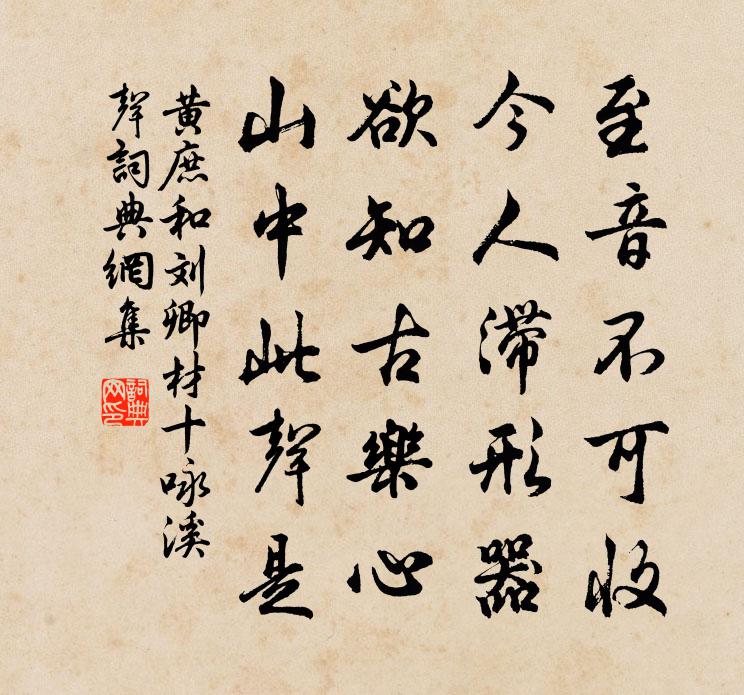 至音不可收
今人滞形器
欲知古樂心
山中此聲是
黄庶和刘卿材十咏溪
聲詞典網集
詞典網印